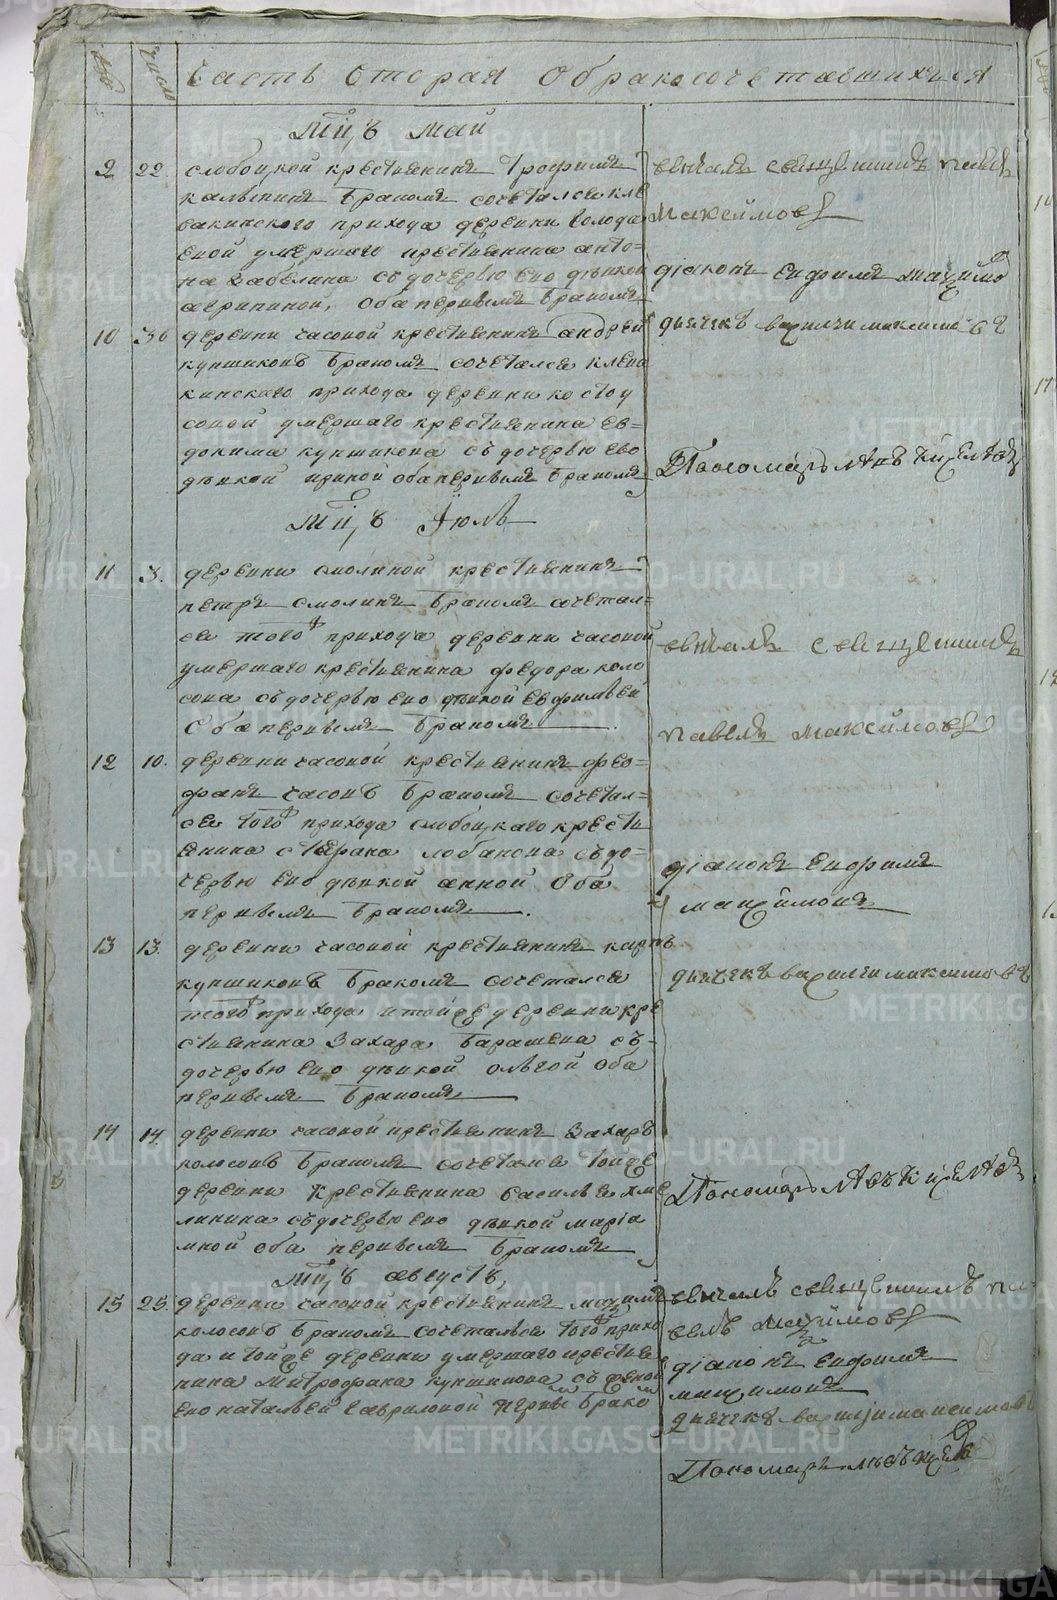 Часть вторая о бракосочетавшихся
число
мцъ май
9 22. слобоцкой крестьянинъ трофимъ
бракомъ сочетался кле
вакинского прихода деревни волода
умершаго крестьянина анто=
на забелина съ дочерью ево девкой
агрипиной, оба первымъ бракомъ
венчалъ священникъ павелъ
Максимовъ
диаконъ ефимъ
10 30 деревни часовой крестьянинъ андрей
купшиковъ бракомъ сочетался клева
кинскаго прихода деревни костоу
совой умершаго крестьянина ев=
докима съ дочерью ево
девкой ириной оба первымъ бракомъ
дьячекъ василий максимовъ
Пономарь левъ
мцъ июль
11 3. деревни смолиной крестьянинъ
петръ смолинъ бракомъ сочетал=
ся тогоже прихода деревни часовой
умершаго крестьянина федора коло
сова съ дочерью ево девкой евфимьей
оба первымъ бракомъ.
венчалъ священникъ
павелъ максимовъ
12 10. деревни часовой крестьянинъ фео=
фанъ часовъ бракомъ сочетал=
ся тогоже прихода слобоцкаго крестья
янина лобанова съ до=
черью ево девкой анной оба
первымъ бракомъ.
диаконъ ефимъ
максимовъ
13 13. деревни часовой крестьянинъ карпъ
купшиковъ бракомъ сочетался
тогоже прихода и тойже деревни кре
стьянина захара съ=
дочерью ево девкой ольгой оба
первымъ бракомъ
дьячекъ василий максимовъ
14 14. деревни часовой крестьянинъ захаръ
колосовъ бракомъ сочетался тойже
деревни крестьянина василья хме
линина съ дочерью ево девкой мариа
мной оба первымъ бракомъ
Пономарь левъ
мцъ августъ
15 25. деревни часовой крестьянинъ
колосовъ бракомъ сочетался тогоже прихо
да и тойже деревни умершаго крестья
нина митрофана купшикова съ женой
ево натальей гавриловой первымъ бракомъ
венчалъ священникъ па
велъ максимовъ
диаконъ ефимъ
максимовъ
дьячекъ
Пономарь левъ
METRIKI.GASO-URAL.RU